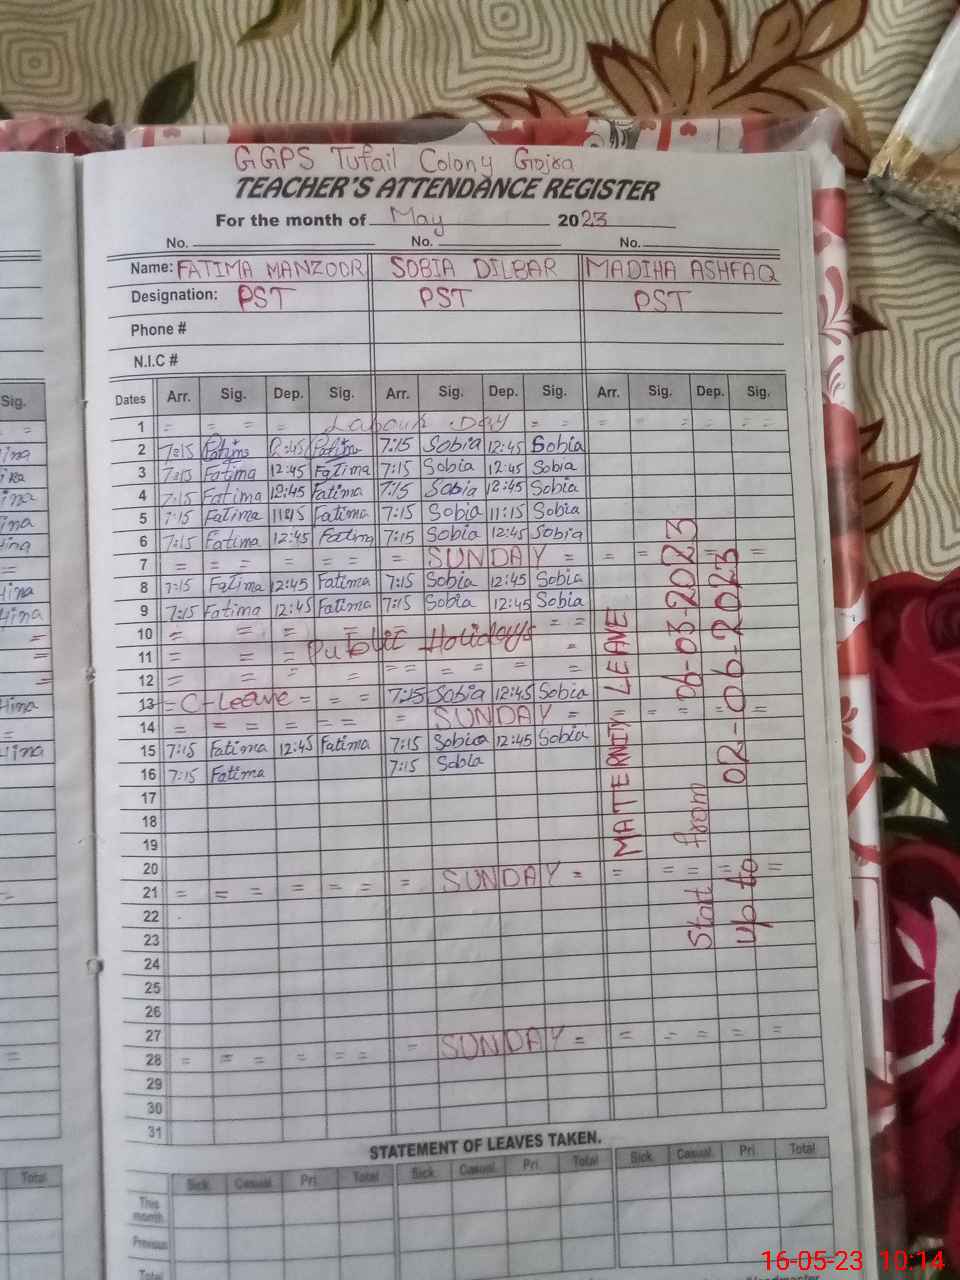 GGPS Tufail Colony Gojra
TEACHER'S ATTENDANCE REGISTER
For the month of May 2023
No. No. No.
Name: FATIMA MANZOOR SOBIA DILBAR MADIHA ASHFAQ
Designation: PST PST PST
Phone #
N.I.C #
Sig. Dates Arr. Sig. Dep. Sig. Arr. Sig. Dep. Sig. Arr. Sig. Dep. Sig.
1 = = = Labour Day = = = = = =
2 7:15 Fatima 12:45 Fatima 7:15 Sobia 12:45 Sobia
3 7:15 Fatima 12:45 Fatima 7:15 Sobia 12:45 Sobia
4 7:15 Fatima 12:45 Fatima 7:15 Sobia 12:45 Sobia
5 7:15 Fatima 11:15 Fatima 7:15 Sobia 11:15 Sobia
6 7:15 Fatima 12:45 Fatima 7:15 Sobia 12:45 Sobia
7 = = = = = = = SUNDAY = = = = =
8 7:15 Fatima 12:45 Fatima 7:15 Sobia 12:45 Sobia
9 7:15 Fatima 12:45 Fatima 7:15 Sobia 12:45 Sobia
10 = = = = = =
11 = = = Public Holidays =
12 = = = = = = = = =
13 = C-Leave = = = 7:15 Sobia 12:45 Sobia
14 = = = = = = = SUNDAY = = = = =
15 7:15 Fatima 12:45 Fatima 7:15 Sobia 12:45 Sobia
16 7:15 Fatima 7:15 Sobia
17
18
19
20
21 = = = = = = = SUNDAY = = = = = =
22
23
24
25
26
27
28 = = = = = = SUNDAY = = = = = =
29
30
31
MATERNITY LEAVE
Start from 06-03-2023
up to 02-06-2023
STATEMENT OF LEAVES TAKEN.
Total Sick. Casual. Pri. Total Sick. Casual. Pri. Total Sick. Casual. Pri. Total
This month
Previous
Total
16-05-23 10:14